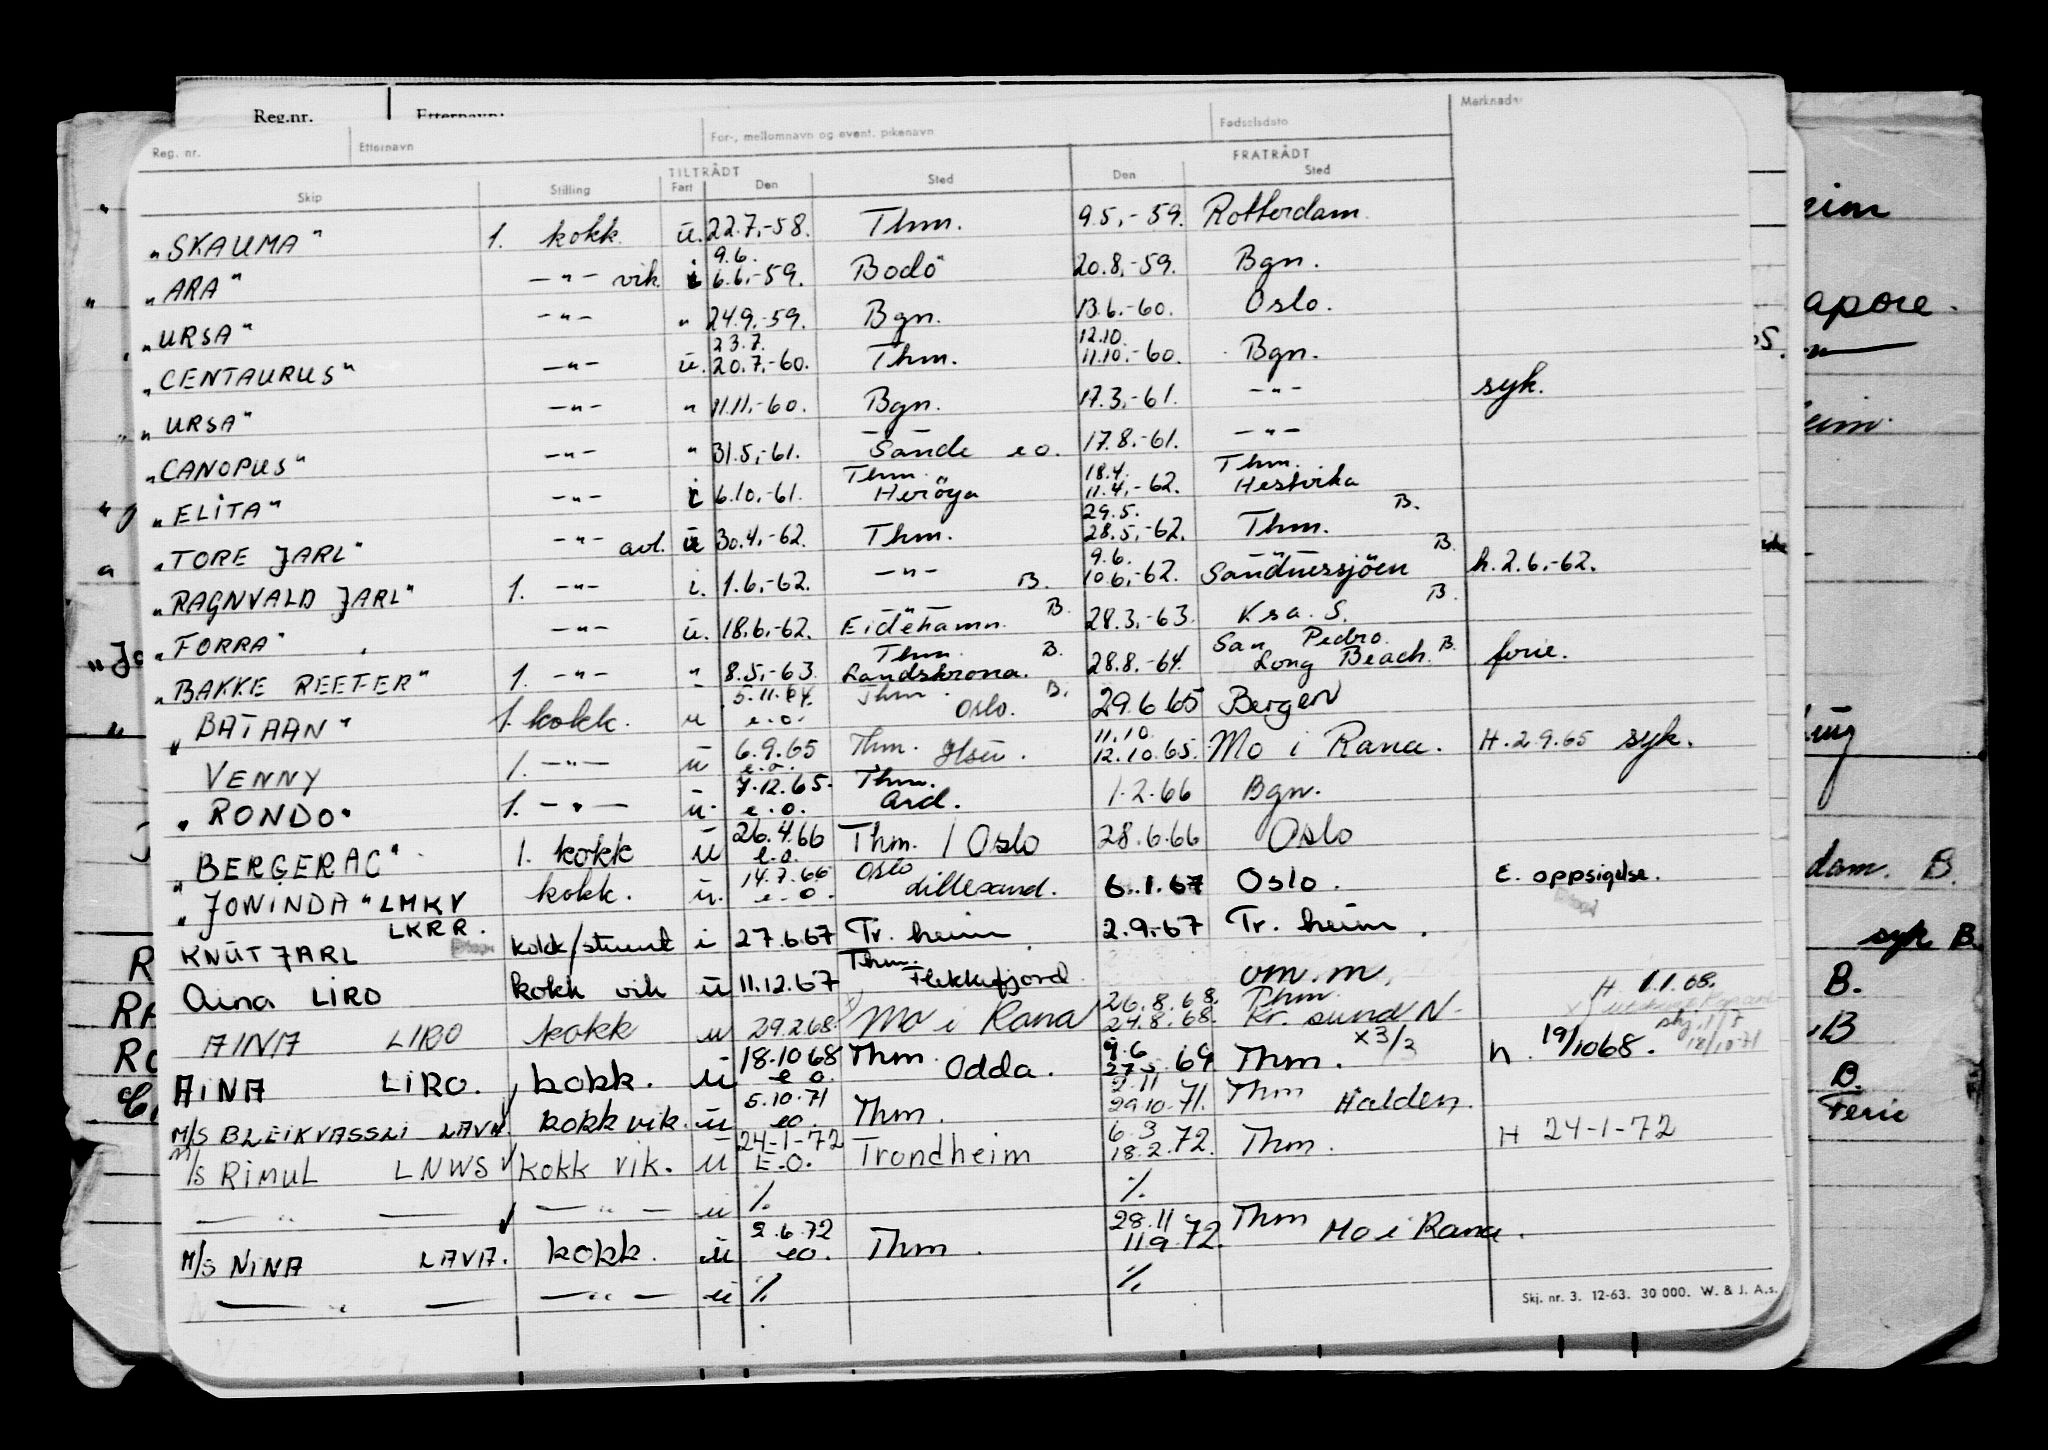 Reg.nr. Etternavn:
Reg. nr. Etternavn For-, mellomnavn og event. pikenavn Fødselsdato Merknader
TILTRÅDT FRATRÅDT
Skip Stilling Fart Den Sted Den Sted
"SKAUMA" 1. kokk. u. 22.7.-58. Thm. 9.5.-59. Rotterdam.
9.6.
"ARA" -"- vik. i 6.6.-59. Bodö 20.8.-59. Bgn.
"URSA" -"- " 24.9.-59. Bgn. 13.6.-60. Oslo.
23.7. 12.10.
"CENTAURUS" -"- u. 20.7.-60. Thm. 11.10.-60. Bgn.
"URSA" -"- " 11.11.-60. Bgn. 17.3.-61. -"- syk.
"CANOPUS" -"- " 31.5.-61. Sande e o. 17.8.-61. -"-
Thm. 18.4. Thm.
"ELITA" -"- i 6.10.-61. Heröya 11.4.-62. Hestvika B.
29.5.
"TORE JARL" -"- avl. u 30.4.-62. Thm. 28.5.-62. Thm. B.
9.6.
"RAGNVALD JARL" 1. -"- i. 1.6.-62. -"- B. 10.6.-62. Sandnessjöen B. h. 2.6.-62.
"FORRA" -"- u. 18.6.-62. Eidehamn. B. 28.3.-63. Ksa. S.
Thm. B. San Pedro.
"BAKKE REEFER" 1. -"- " 8.5.-63. Landskrona. 28.8.-64. Long Beach. B. ferie.
5.11.64. Thm. B.
"BATAAN" 1. kokk. u e.o. Oslo. 29.6 65 Bergen
6.9.65 11.10.
VENNY 1. -"- u e.o. Thm. 12.10.65. Mo i Rana. H. 2.9.65 syk.
7.12.65. Thm.
"RONDO" 1. -"- u. e.o. Ard. 1.2.66 Bgn.
26.4.66
"BERGERAC" 1. kokk u e.o. Thm. / Oslo 28.6.66 Oslo
14.7.66 Oslo
"JOWINDA" LMKV kokk. u. e.o. Lillesand. 6.1.67 Oslo. E. oppsigelse.
LKRR.
KNUT JARL kokk/stuert i 27.6.67 Tr. heim 2.9.67 Tr. heim.
Thm.
Aina LIRO kokk vik u 11.12.67 Flekkefjord om.m. H. 1.1.68.
26.8.68. Thm.
AINA LIRO kokk u 29.2.68. Mo i Rana 24.8.68. Kr. sund N. 
18.10 68 9.6 x3/3
AINA LIRO. kokk. u e o. Thm. Odda. 27.5 69 Thm. h. 19/10 68.
5.10.71 2.11
M/S BLEIKVASSLI LAVN kokk vik. u eo. Thm. 29.10.71. Thm Halden.
24-1-72 6.3
M/S RIMUL LNWS kokk vik. u E.O. Trondheim 18.2.72. Thm. H 24-1-72
—"— —"— u % %
2.6.72 28.11
M/S NINA LAVA. kokk. u eo. Thm. 11.9.72. Thm Mo i Rana.
—"— —"— u % %
Skj. nr. 3. 12-63. 30 000. W. & J. A.s.
apore.
dam. B.
syk B.
B.
B
B.
Ferie